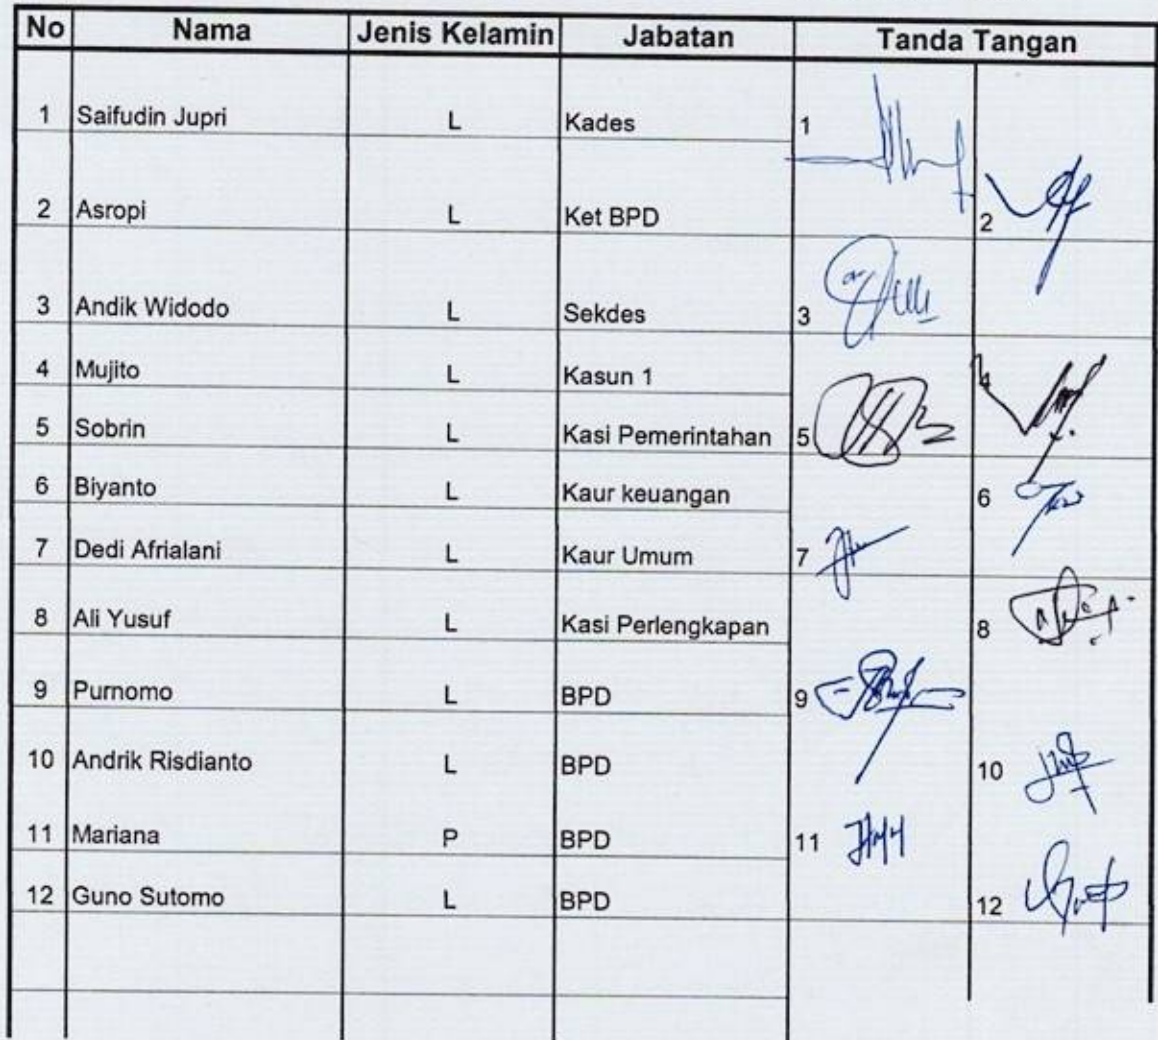 No Nama Jenis Kelamin Jabatan Tanda Tangan
1 Saifudin Jupri L Kades 1
2 Asropi L Ket BPD 2
3 Andik Widodo L Sekdes 3
4 Mujito L Kasun 1 4
5 Sobrin L Kasi Pemerintahan 5
6 Biyanto L Kaur keuangan 6
7 Dedi Afrialani L Kaur Umum 7
8 Ali Yusuf L Kasi Perlengkapan 8
9 Purnomo L BPD 9
10 Andrik Risdianto L BPD 10
11 Mariana P BPD 11
12 Guno Sutomo L BPD 12